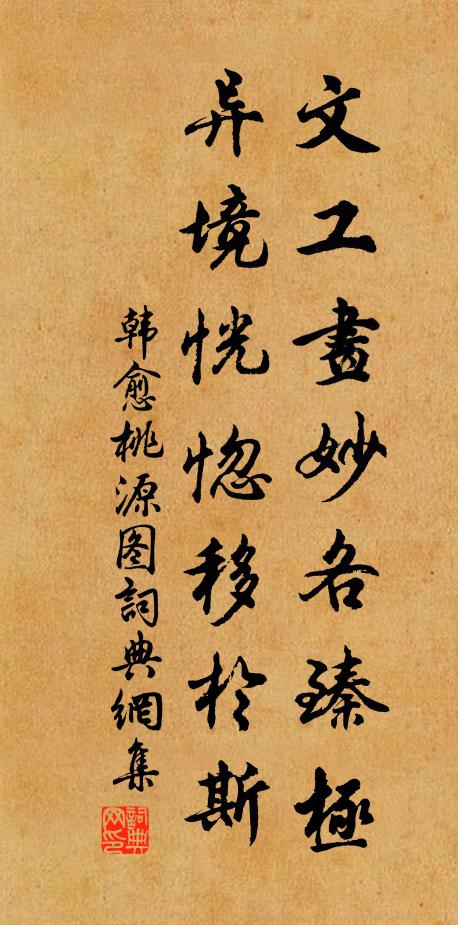 文工畫妙各臻極
异境恍惚移於斯
韩愈桃源图詞典網集
詞典网印